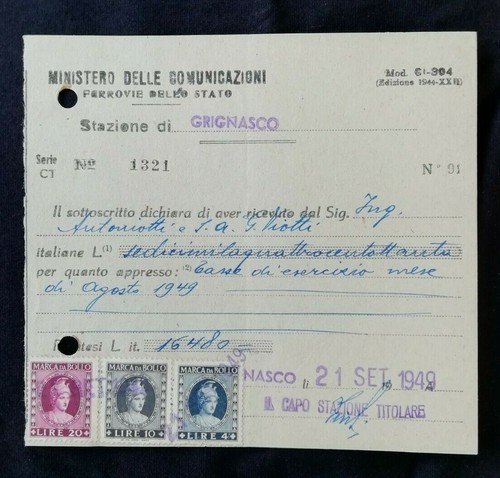 MINISTERO DELLE COMUNICAZIONI
FERROVIE DELLO STATO
Mod. CI-304
(Edizione 1944-XXII)
Stazione di GRIGNASCO
Serie CT No 1321
N° 91
Il sottoscritto dichiara di aver ricevuto dal Sig. Ing.
Antoniotti e S.A. G. Viotti
italiane L.(1) sedicimilaquattrocentottanta
per quanto appresso: (2) Tasse di esercizio mese
di Agosto 1949
L. it. 16480
MARCA DA BOLLO
LIRE 20
MARCA DA BOLLO
LIRE 10
MARCA DA BOLLO
LIRE 4
NASCO li 21 SET 1949
IL CAPO STAZIONE TITOLARE